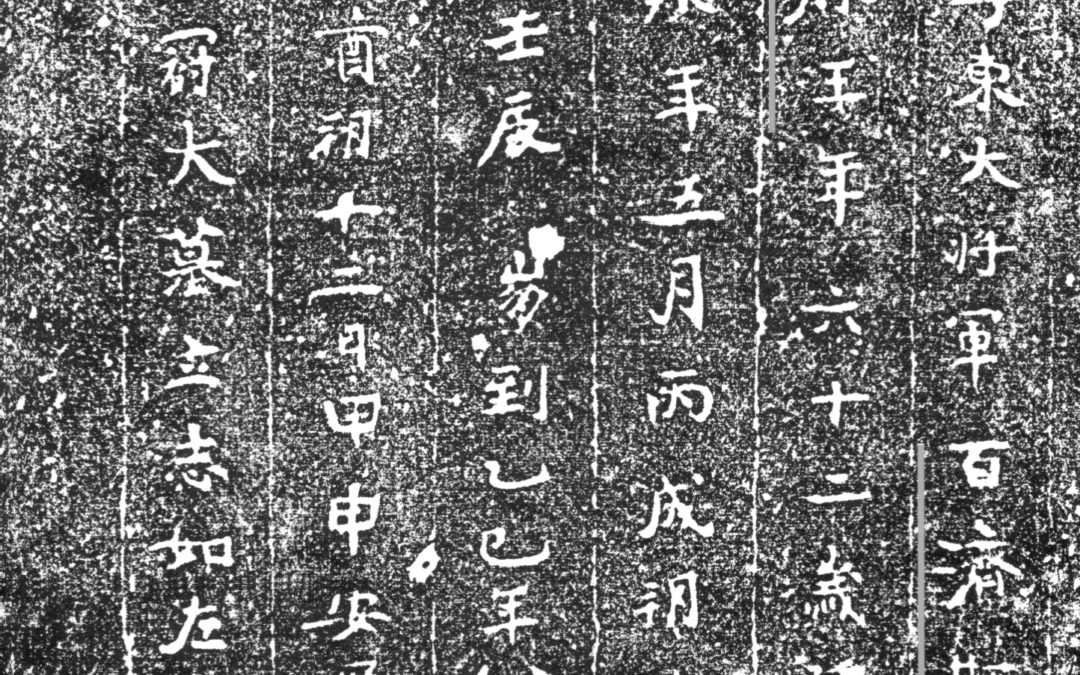 東大将軍百濟斯
王年六十二歲
年五月丙戌朔
壬辰崩到乙巳年
酉朔十二日甲申安
冠大墓立志如左